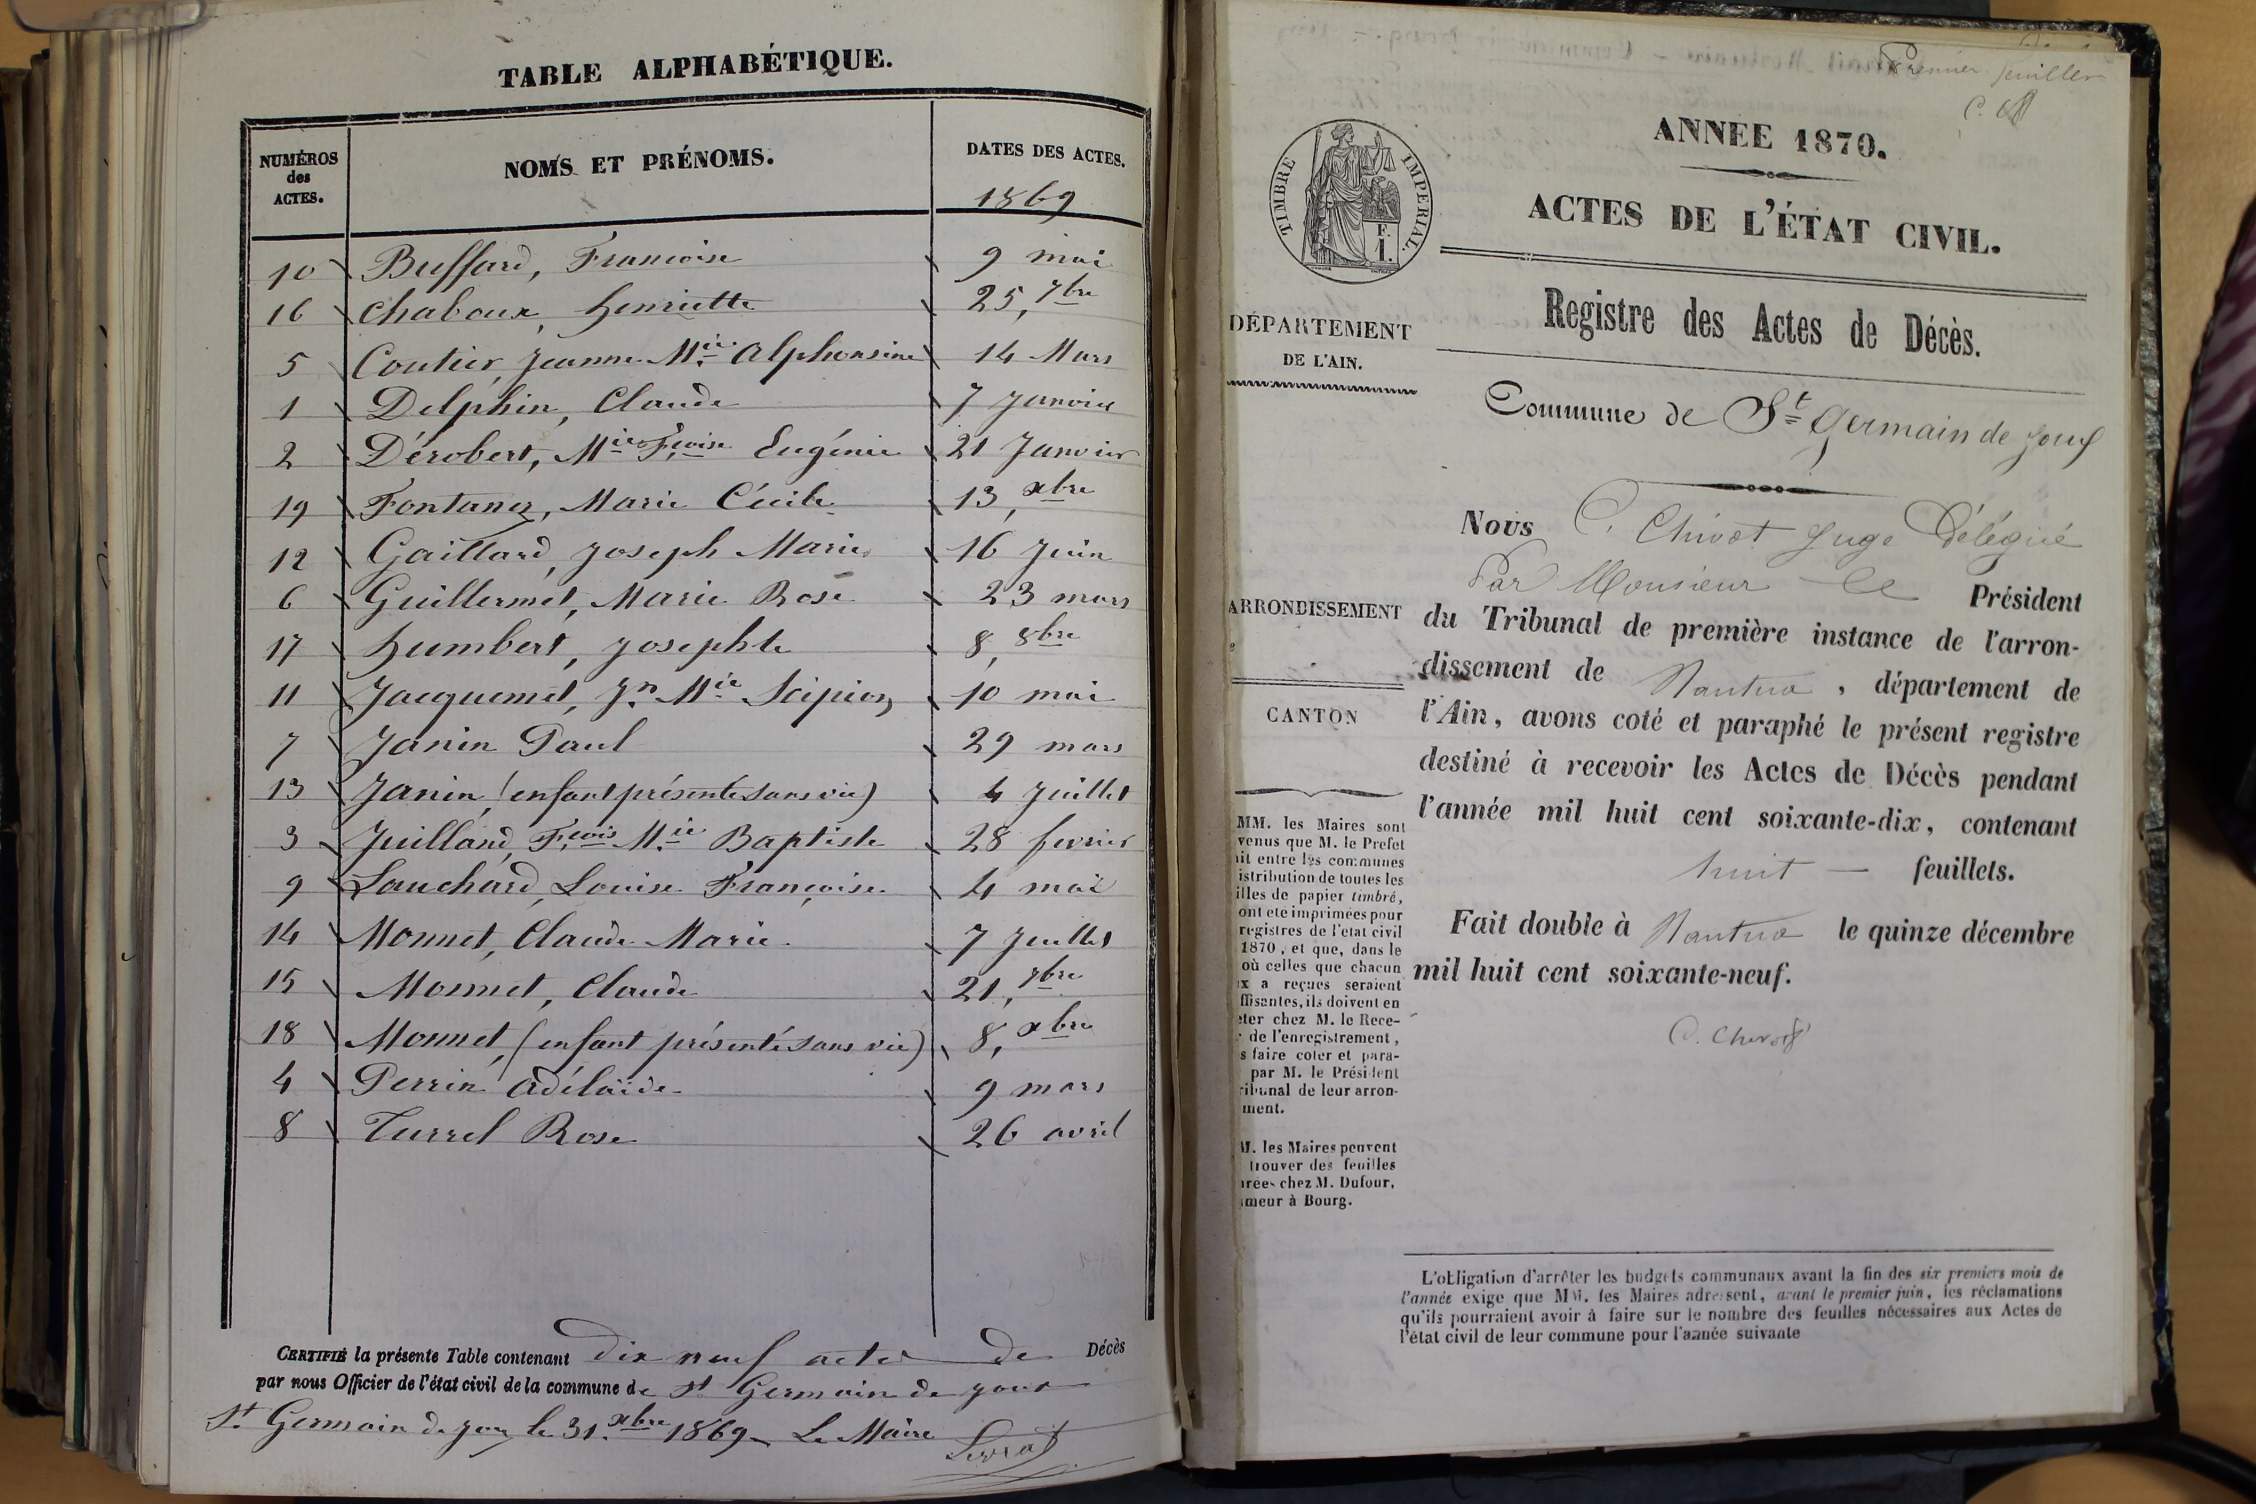 TABLE ALPHABÉTIQUE.
NUMÉROS des ACTES.
NOMS ET PRÉNOMS.
DATES DES ACTES.
1869
10 Buffard, Francoise 9 mai
16 Chaboux, henriette 25, 7bre
5 Coutier, Jeanne Mie. Alphonsine 14 Mars
1 Delphin, Claude 7 Janvier
2 Dérobert, Mie Foise Eugénie 21 Janvier
19 Fontanez, Marie Cécile 13, xbre
12 Gaillard, Joseph Marie 16 Juin
6 Guillermet, Marie Rose 23 mars
17 humbert, Josephte 8, 8bre
11 Jacquemet, Jn. Mie Scipion 10 mai
7 Janin Paul 29 mars
13 Janin, (enfant présenté sans vie) 4 Juillet
3 Juilland, Fcois Mie Baptiste 28 fevrier
9 Lauchard, Louise Françoise 4 mai
14 Monnet, Claude Marie 7 Juillet
15 Monnet, Claude 21, 7bre
18 Monnet, (enfant présenté sans vie) 8, xbre
4 Perrin Adélaïde 9 mars
8 Turrel Rose 26 avril
CERTIFIÉ la présente Table contenant dix neuf actes de Décès
par nous Officier de l'état civil de la commune de St Germain de Joux
St Germain de Joux le 31. xbre 1869 Le Maire
Livrat
Premier feuillet
ANNÉE 1870.
TIMBRE IMPERIAL.
F.
1.
ACTES DE L'ÉTAT CIVIL.
Registre des Actes de Décès.
DÉPARTEMENT
DE L'AIN.
Commune de St Germain de Joux
Nous C. Chivot Juge Délégué
Par Monsieur Le Président
ARRONDISSEMENT
du Tribunal de première instance de l'arron-
dissement de Nantua, département de
CANTON
l'Ain, avons coté et paraphé le présent registre
destiné à recevoir les Actes de Décès pendant
l'année mil huit cent soixante-dix, contenant
huit — feuillets.
Fait double à Nantua le quinze décembre
mil huit cent soixante-neuf.
C. Chivot
MM. les Maires sont
venus que M. le Préfet
it entre les communes
istribution de toutes les
illes de papier timbré,
ont été imprimées pour
registres de l'état civil
1870, et que, dans le
où celles que chacun
x a reçues seraient
ffisantes, ils doivent en
eter chez M. le Rece-
de l'enregistrement,
s faire coter et para-
par M. le Président
ribunal de leur arron-
ment.
M. les Maires peuvent
trouver des feuilles
brées chez M. Dufour,
meur à Bourg.
L'obligation d'arrêter les budgets communaux avant la fin des six premiers mois de
l'année exige que MM. les Maires adressent, avant le premier juin, les réclamations
qu'ils pourraient avoir à faire sur le nombre des feuilles nécessaires aux Actes de
l'état civil de leur commune pour l'année suivante